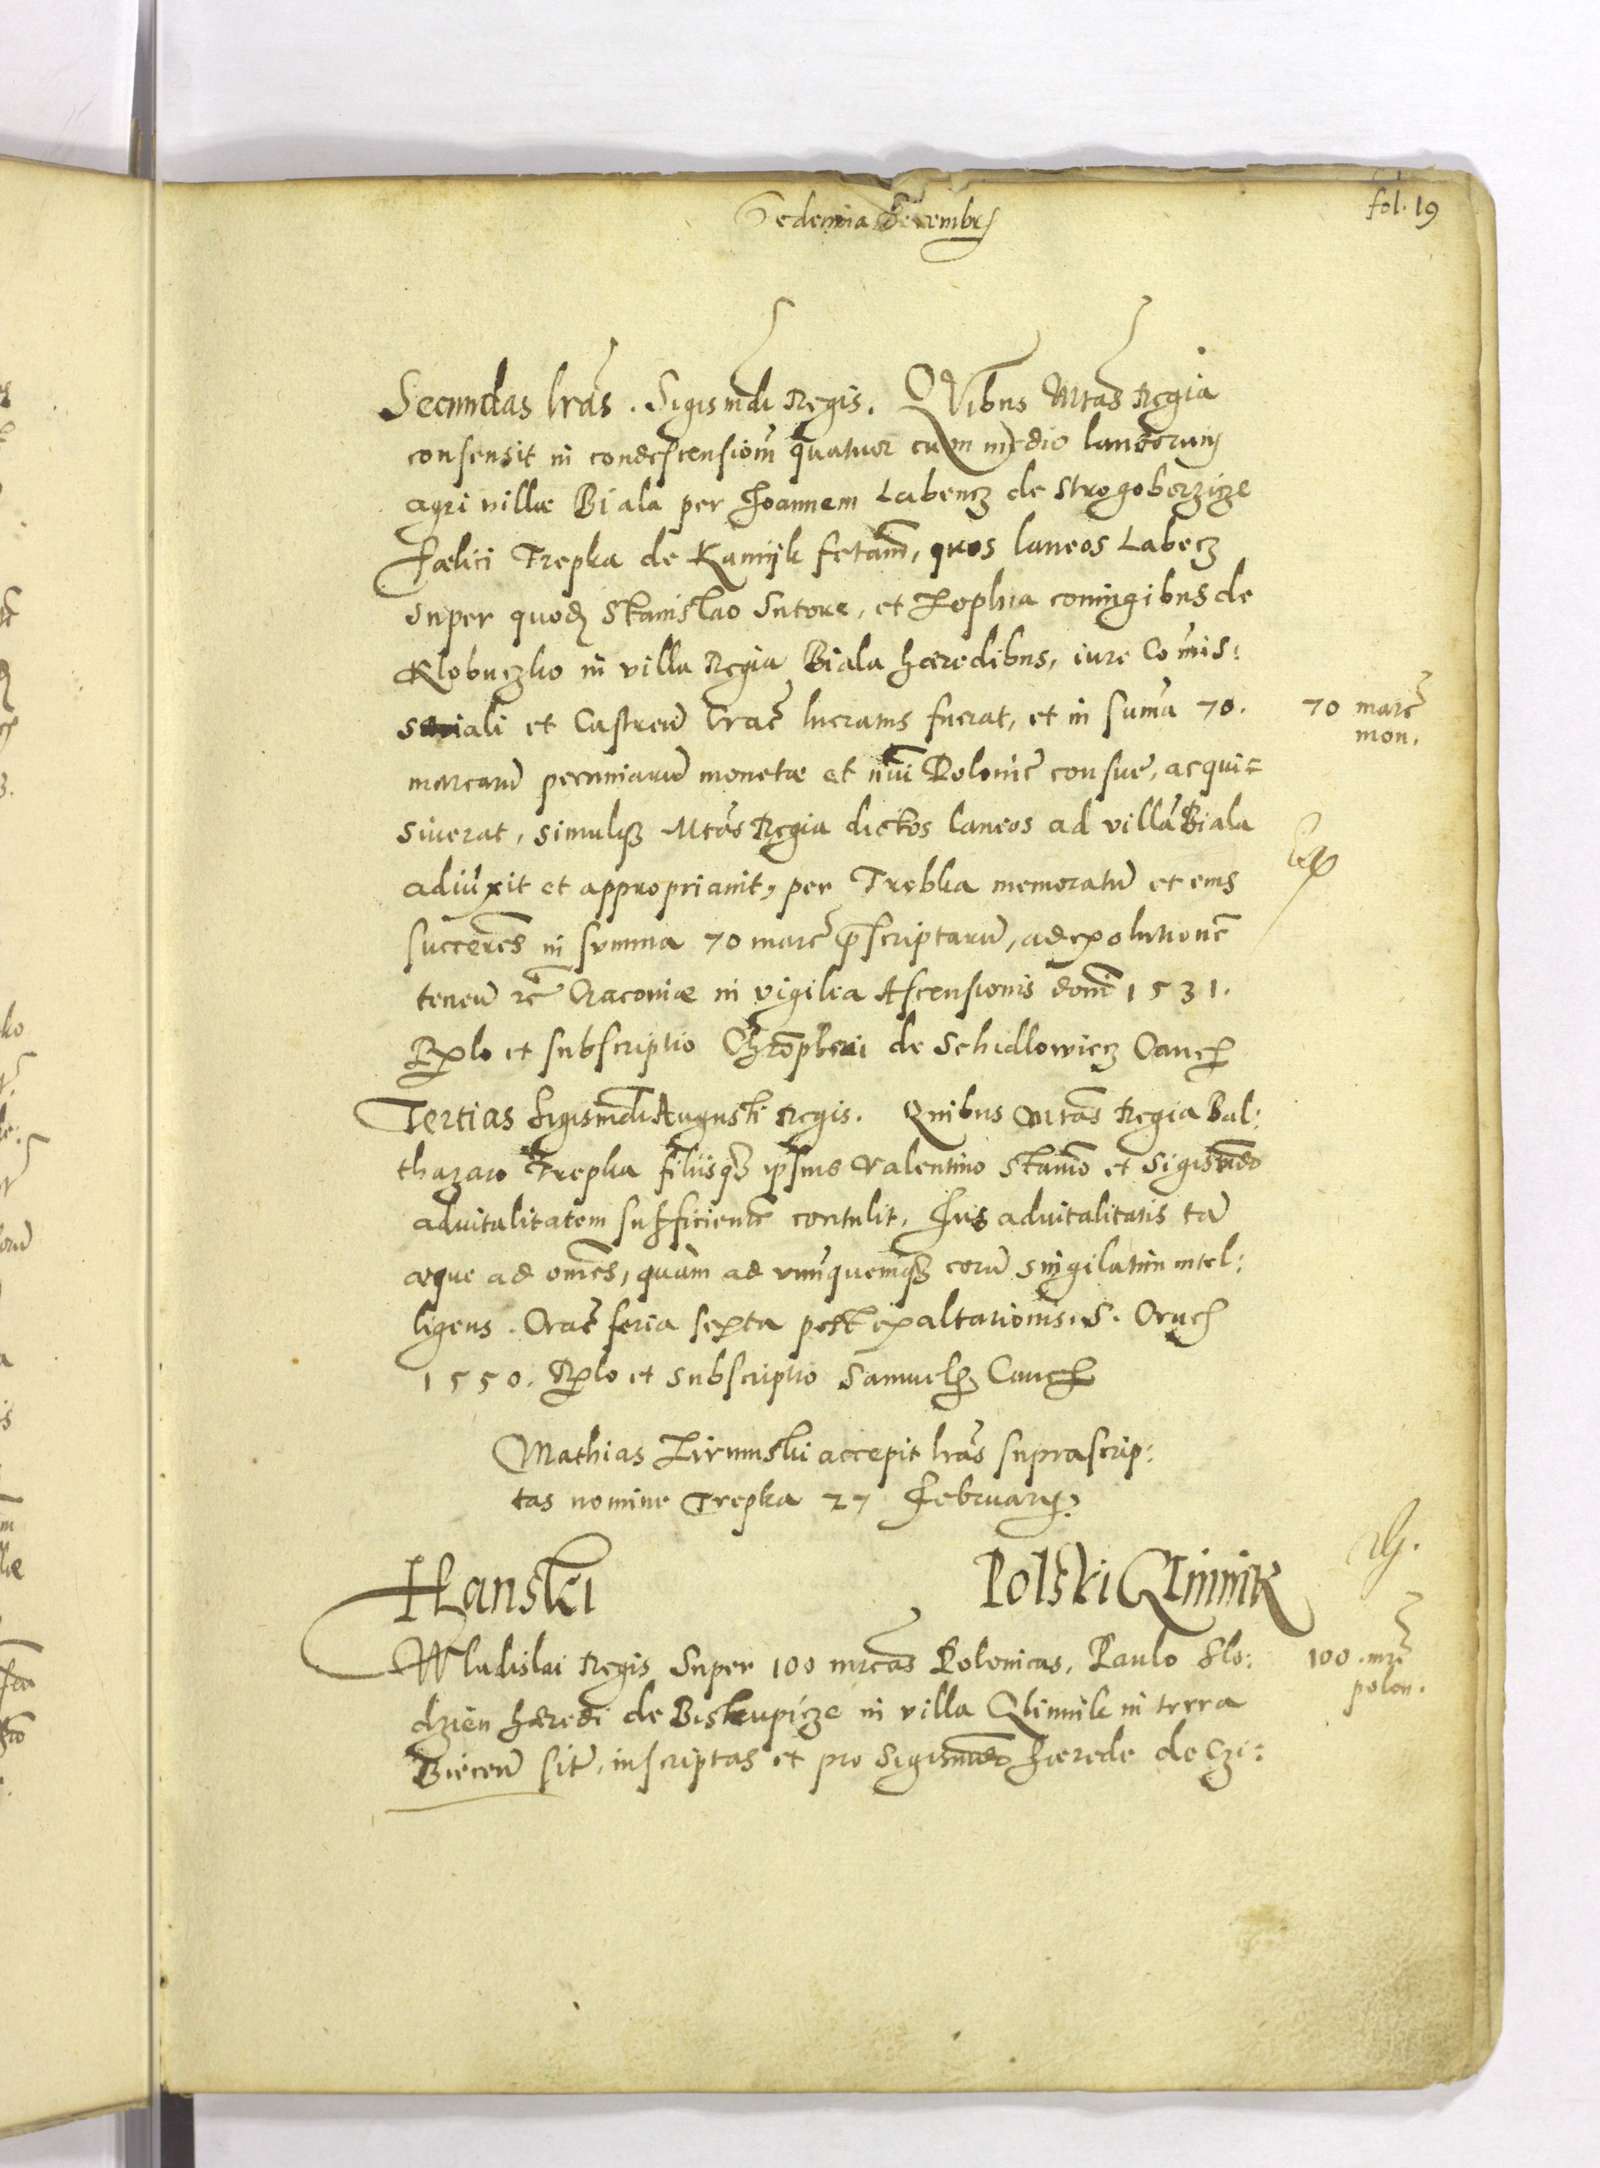 fol. 19
Sedecima Decembris
Secundas lras. Sigismdi Regis. Quibus Mtas Regia
consensit in condescensiom quatuor cum medio laneorum
agri villæ Biala per Joannem Labencz de Strogoborzicze
Fælici Trepka de Kamijk fctam, quos laneos Labecz
super quodam Stanislao Sutore, et Zophia coniugibus de
Klobuczko in villa Regia Biala hæredibus, iure Comis:
soriali et Castren Crac lucratus fuerat, et in suma 70.
70 marc
mon.
marcarum pecuniarum monetæ et nui Polonic consue, acqui=
siverat, simulq3 Mtas Regia dictos laneos ad villa Biala
adiuxit et appropriavit, per Trebka memoratu et eius
succeres in summa 70 marc pscriptaru, ad expolutione
tenen rc Cracoviæ in vigilia Ascensionis domi 1531.
Rxlo et subscriptio Christopheri de Schidlowiecz Canc
Tertias Sigismdi Augusti Regis. Quibus Mtas Regia Bal:
thazaro Trepka filiisq3 ipsius Valentino Stanio et Sigismdo
advitalitatem sufficiente contulit, Jus advitalitatis tam
æque ad omes, quam ad unuquemq3 eorum singilatim intel:
ligens. Crac feria sexta post exaltationis. S. Cruc
1550. Rxlo et subscriptio Samuelis Canc
Mathias Zirnuski accepit lras suprascrip:
tas nomine Trepka 27 Februarij.
Hanski Polski Qlimik
Wladislai Regis Super 100 mrcas Polonicas, Paulo Slo:
100. mrc
polon.
dzien hæredi de Biskupicze in villa Qlimik in terra
Biecen sit, inscriptas et pro Sigismdo hærede de Czi: